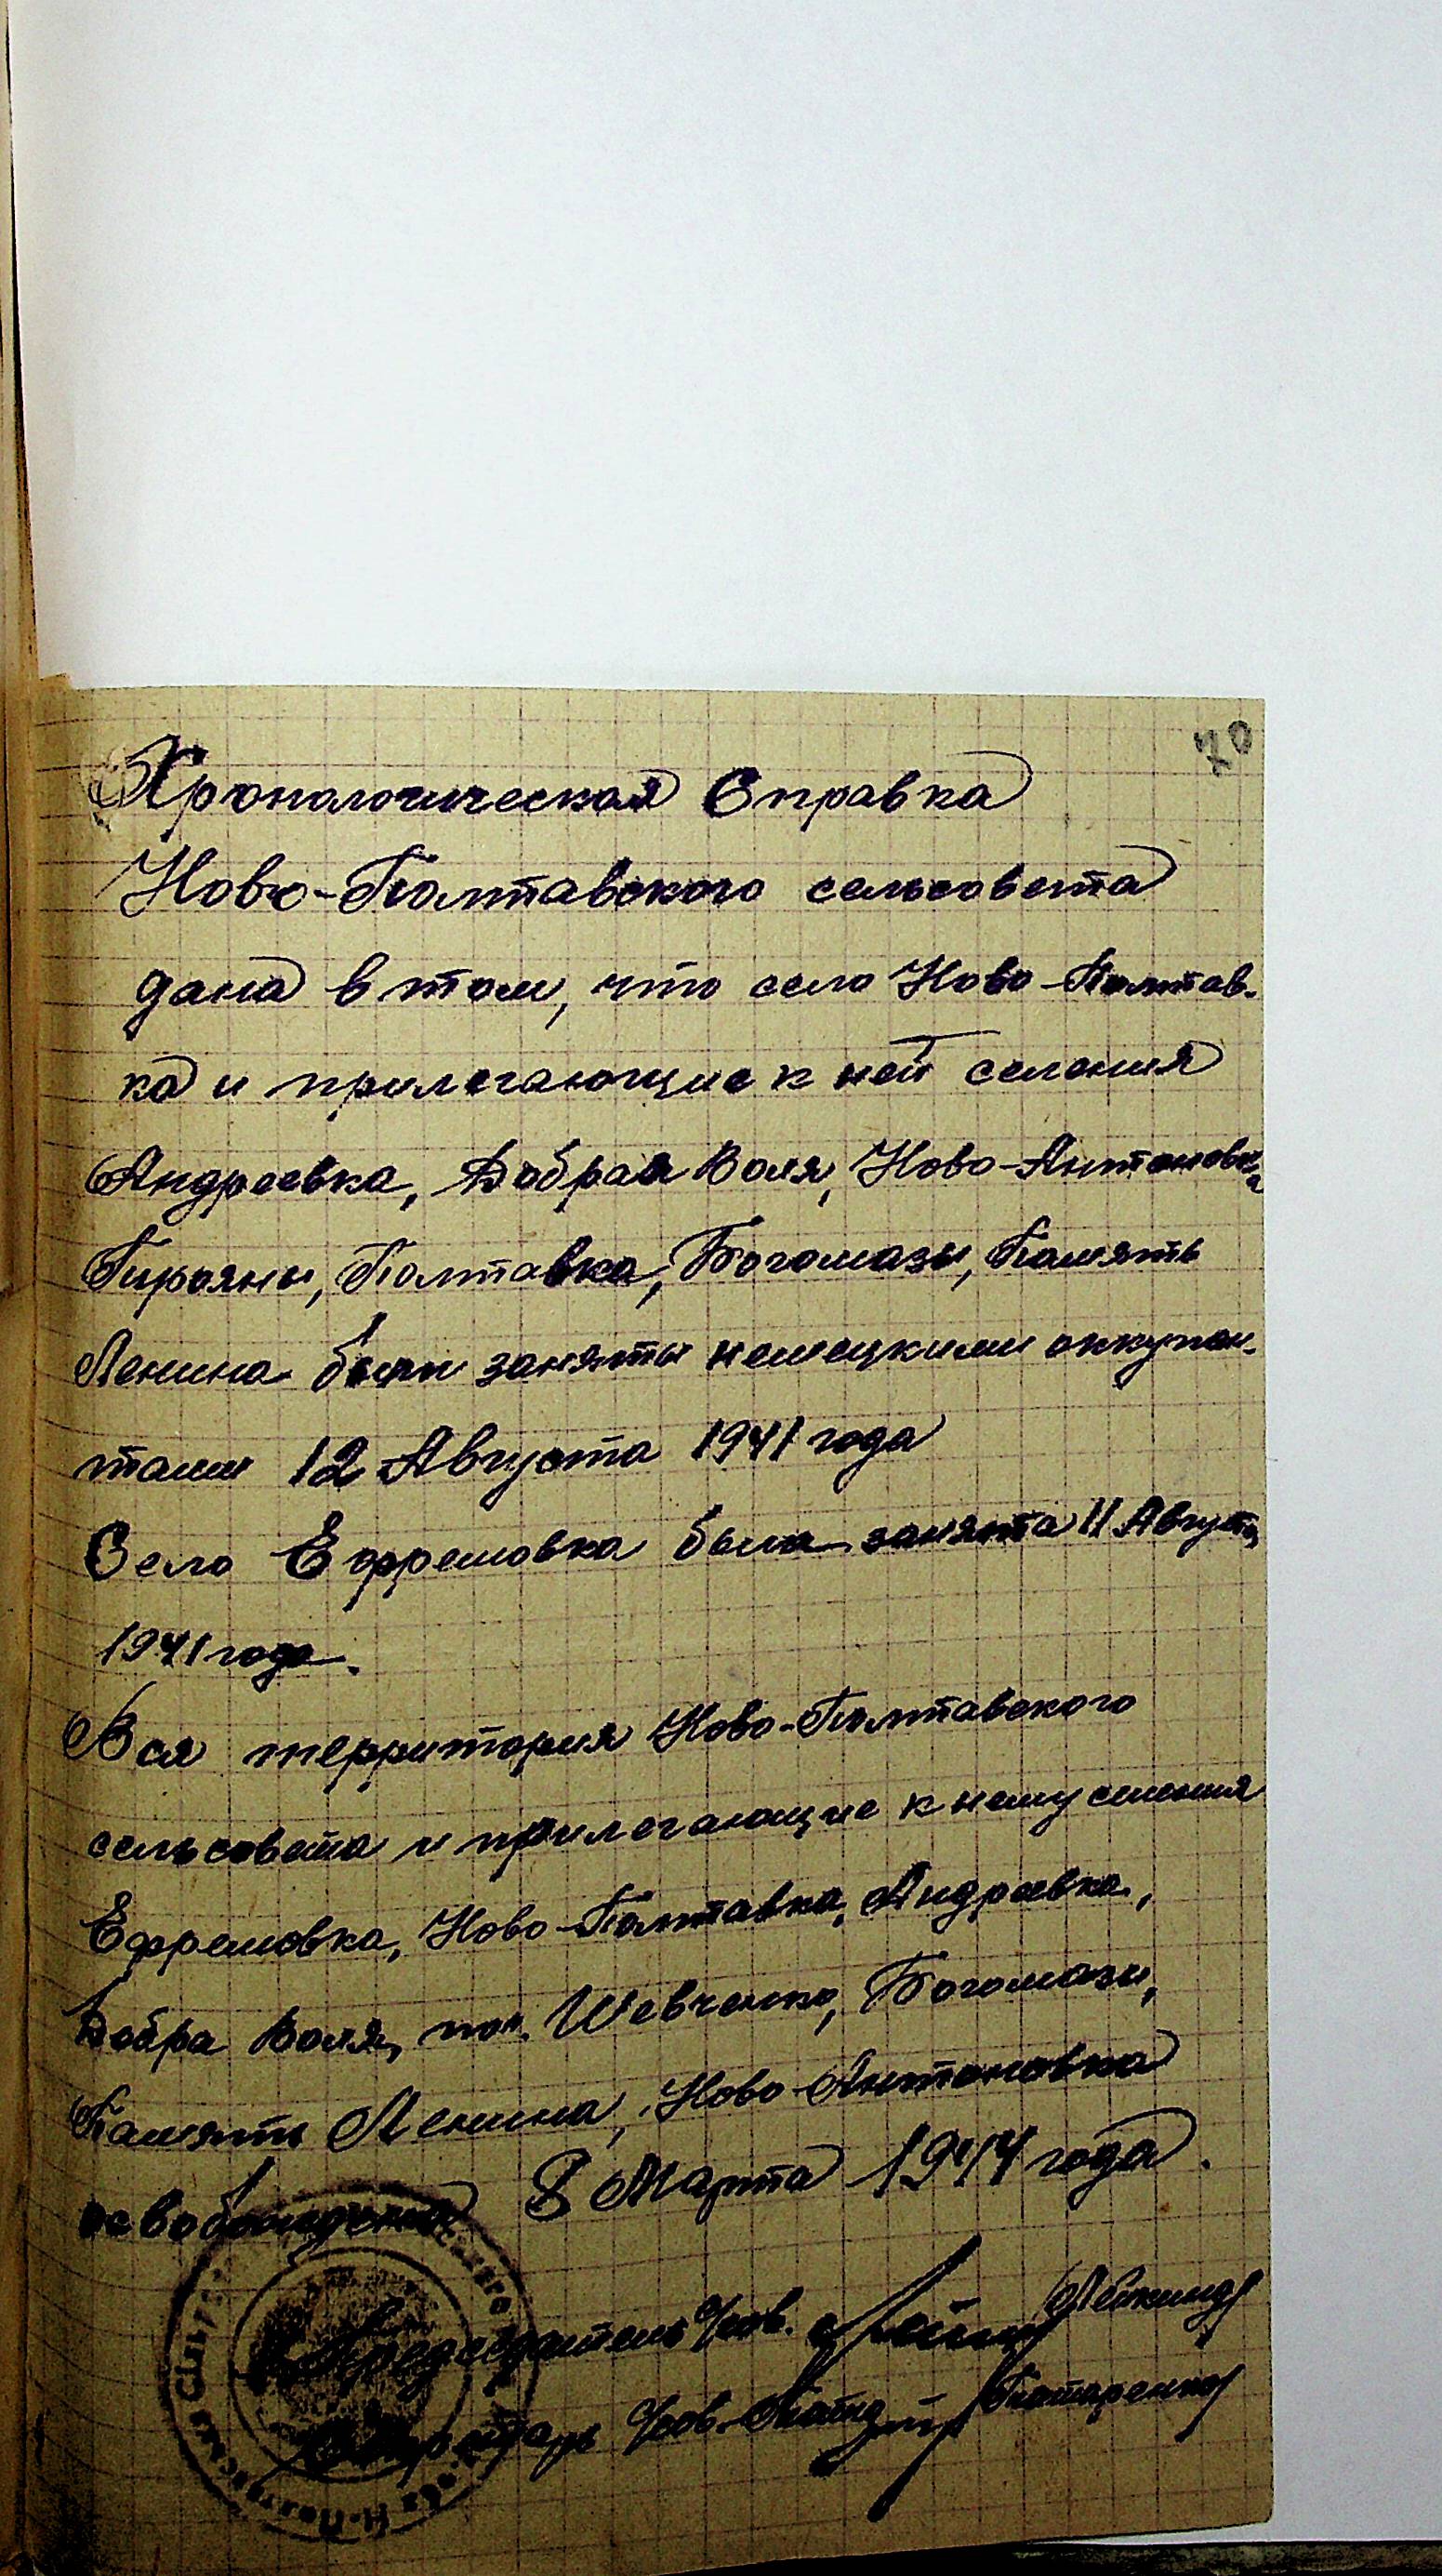 70
Хроналогическая Справка
Ново-Полтавского сельсовета
дана в том, что село Ново-Полтав-
ка и прилегающие к ней селения
Андреевка, Добрая Воля, Ново-Антоновка
Пирояны, Полтавка, Богомазы, Память
Ленина были заняты немецкими оккупан-
тами 12 Августа 1941 года
Село Ефремовка была занята 11 Августа
1941 года.
Вся территория Ново-Полтавского
сельсовета и прилегающие к нему селения
Ефремовка, Ново-Полтавка, Андреевка,
Добра Воля, пос. Шевченко, Богомазы,
Память Ленина, Ново-Антоновка
освобождена 8 Марта 1944 года.
Председатель с/сов.
Секретарь с/сов.